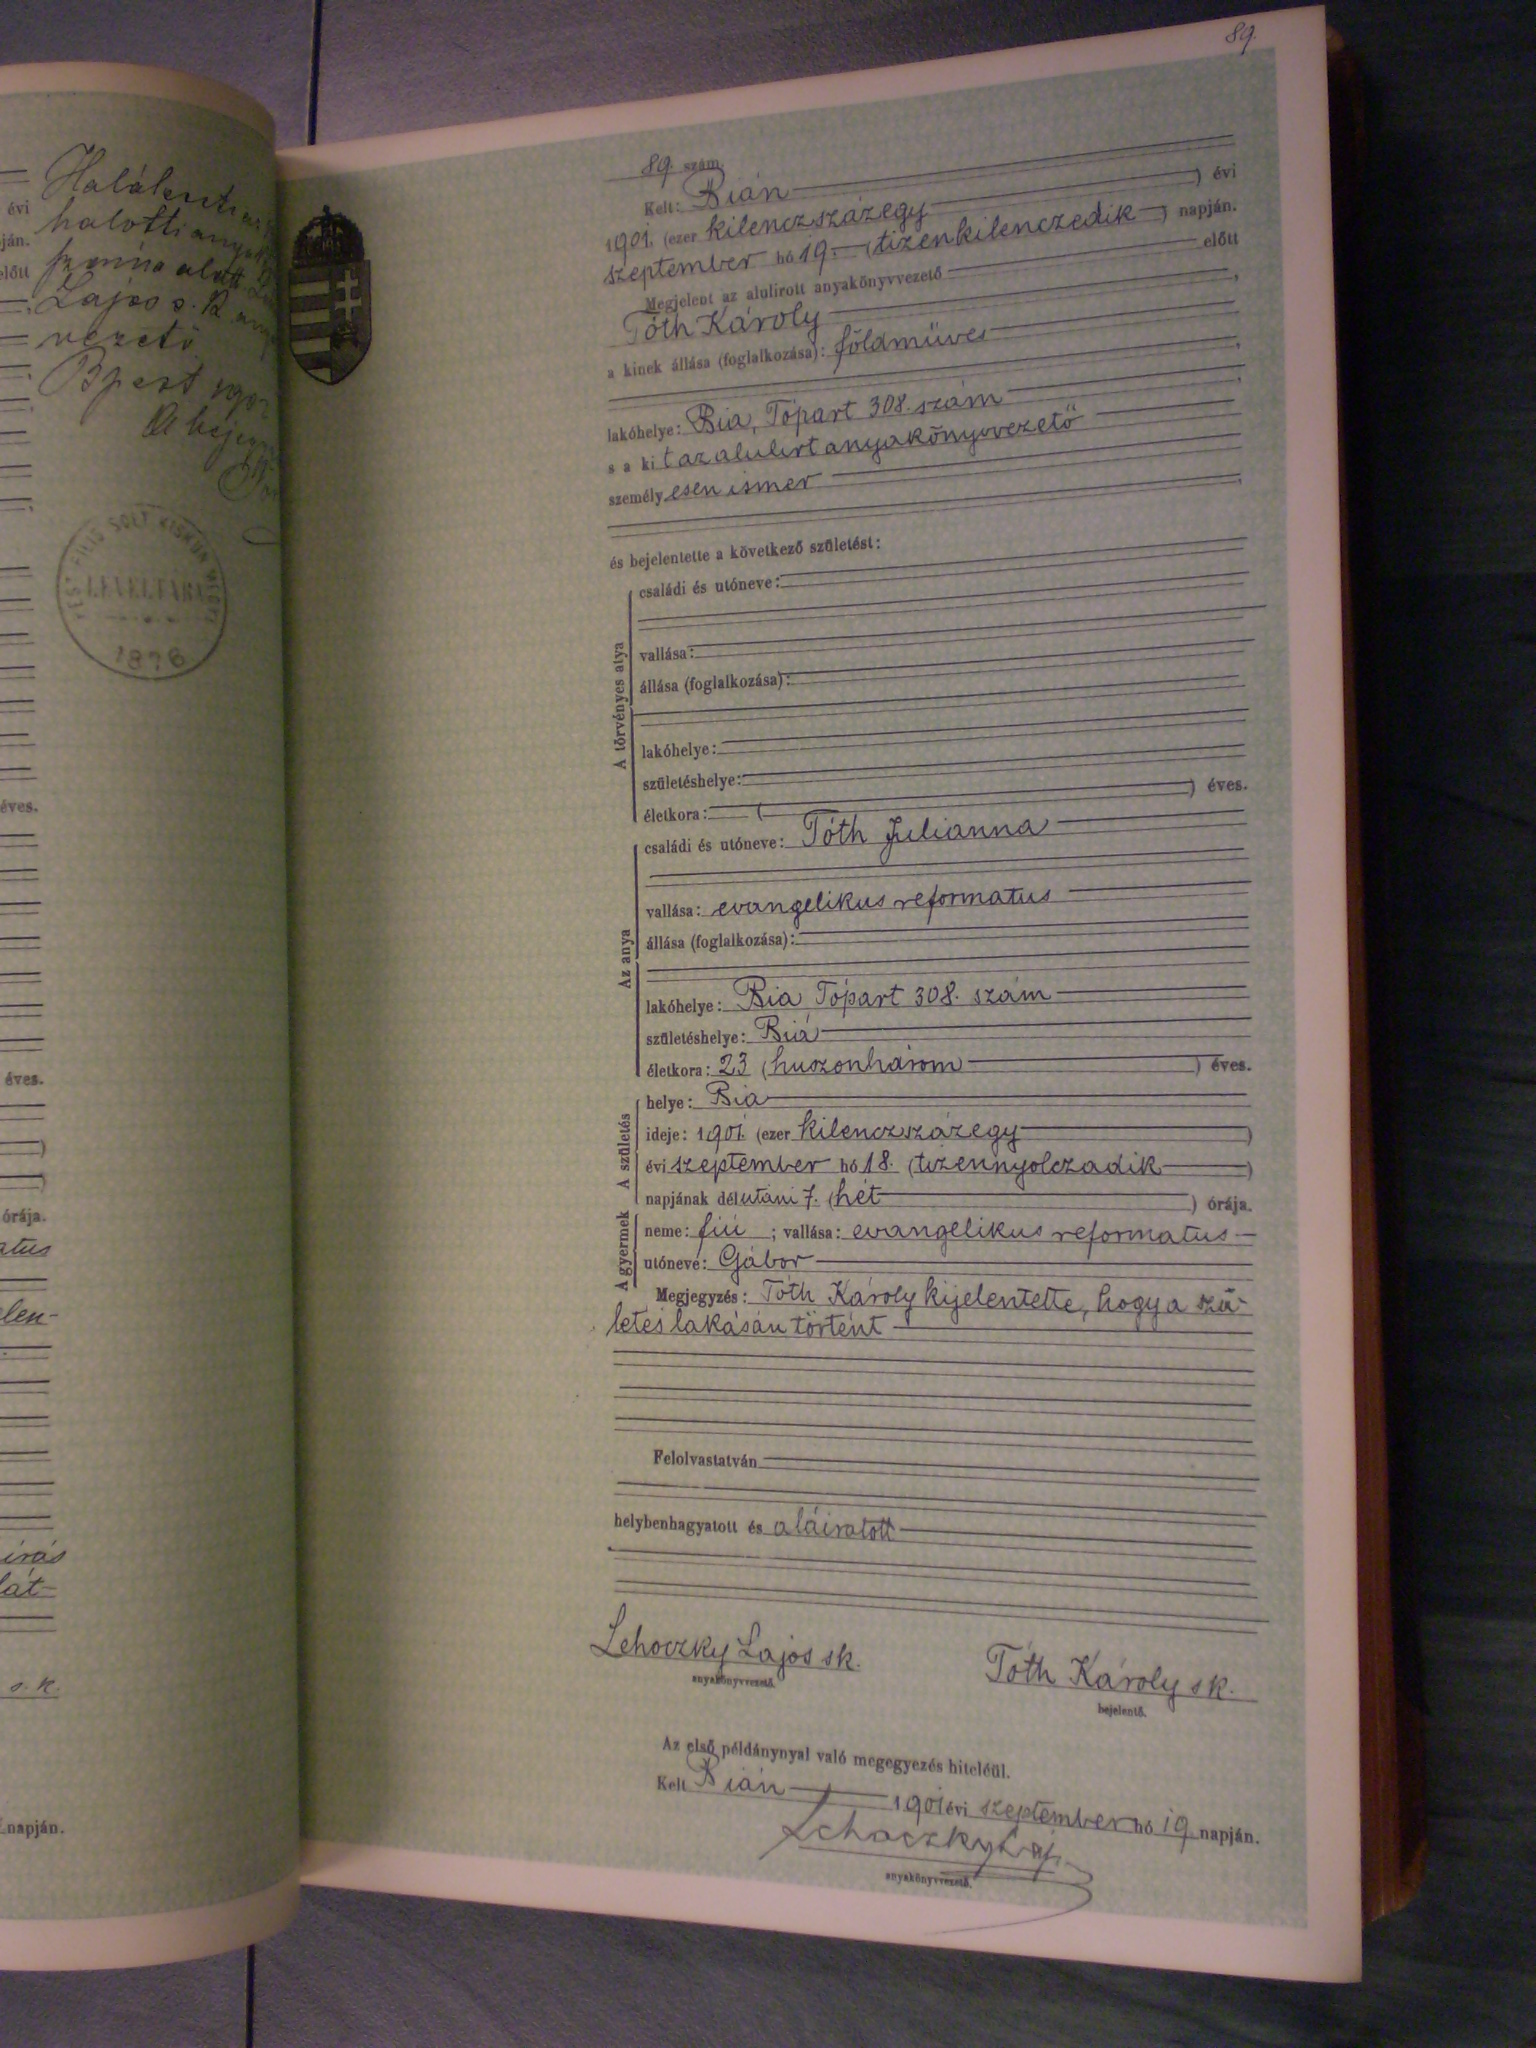 89.
évi
ján.
előtt
éves.
éves.
órája.
atus
elen-
irás
lát-
s. k.
napján.
halotti
alatt
Lajos s. k.
vezető
Bpest
LEVÉLTÁRA
1876
89. szám.
Kelt: Bián ) évi
1901. (ezer kilenczszázegy
szeptember hó 19. (tizenkilenczedik ) napján.
Megjelent az alulirott anyakönyvvezető előtt
Tóth Károly
a kinek állása (foglalkozása): földmüves
lakóhelye: Bia, Tópart 308. szám
s a kit az alulirt anyakönyvvezető
személyesen ismer
és bejelentette a következő születést:
A törvényes atya
családi és utóneve:
vallása:
állása (foglalkozása):
lakóhelye:
születéshelye:
életkora: ( ) éves.
Az anya
családi és utóneve: Tóth Julianna
vallása: evangelikus reformatus
állása (foglalkozása):
lakóhelye: Bia Tópart 308. szám
születéshelye: Bia
életkora: 23 (huszonhárom ) éves.
A születés
helye: Bia
ideje: 1901. (ezer kilenczszázegy )
évi szeptember hó 18. (tizennyolczadik )
napjának délutáni 7. (hét ) órája.
A gyermek
neme: fiú ; vallása: evangelikus reformatus
utóneve: Gábor
Megjegyzés: Tóth Károly kijelentette, hogy a szü-
letés lakásán történt
Felolvastatván
helybenhagyatott és aláiratott
Lehoczky Lajos sk.
anyakönyvvezető.
Tóth Károly sk.
bejelentő.
Az első példánynyal való megegyezés hiteléül.
Kelt Bián 1901 évi szeptember hó 19 napján.
Lehoczky Laj.
anyakönyvvezető.